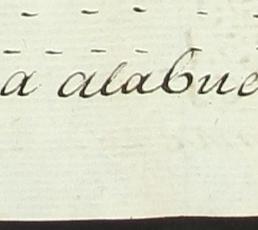 a alabue